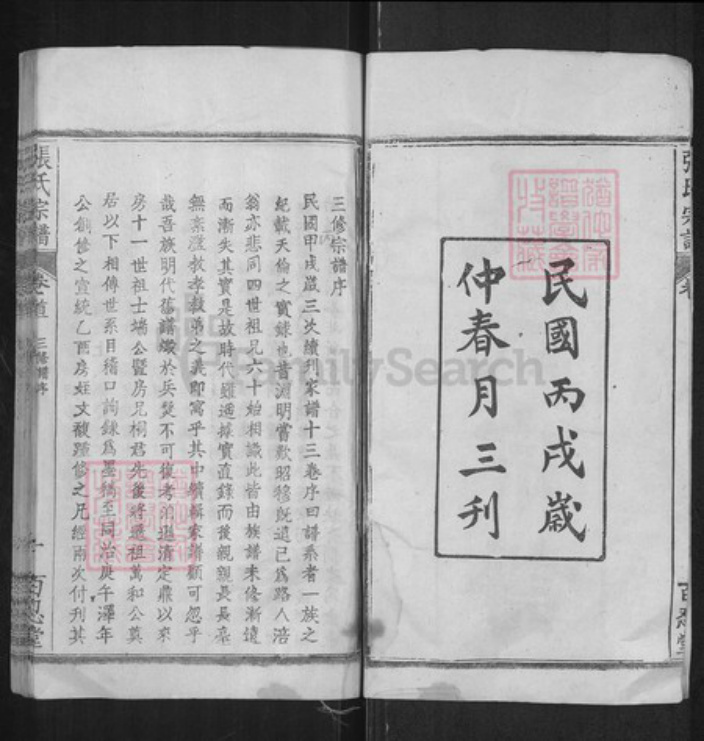 張氏宗譜
民國丙戌歲
仲春月三刊
百忍堂
三修宗譜序
民國甲戌歲三次續刋家譜十三卷序曰譜系者一族之
紀載天倫之實錄也昔淵明嘗歎昭穆既遠已為路人涪
翁亦悲同四世祖兄六十始相識此皆由族譜未修漸遠
而漸失其實是故時代雖遙據實直錄而後親親長長靡
無紊淆教孝教弟之義即寓乎其中續輯家譜顧可忽乎
哉吾族明代舊譜燬於兵燹不可復考洎遜清定鼎以來
房十一世祖士端公暨房兄桐君先後將遷祖萬和公奠
居以下相傳世系目稽口詢錄為墨稿至同治庚午澤年
公創修之宣統乙酉房姪文馥踵修之凡經兩次付刋其
張氏宗譜
卷首
三修譜序
一
百忍堂
FamilySearch